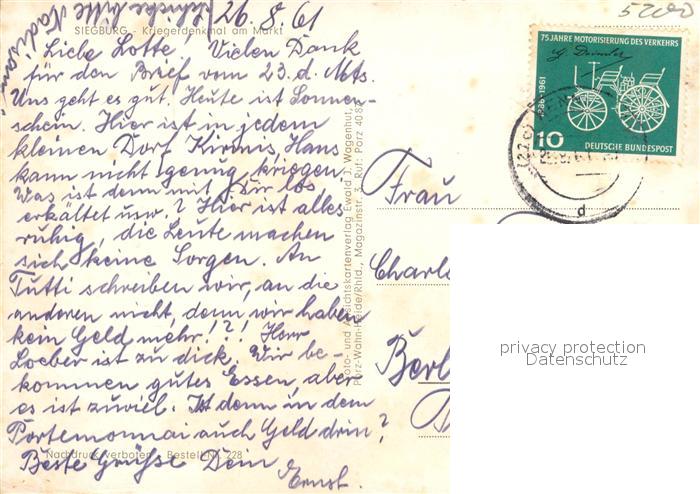 26.8.61
SIEGBURG - Kriegerdenkmal am Markt
Liebe Lotte! Vielen Dank
für den Brief vom 23. d. Mts.
Uns geht es gut. Heute ist Sonnen-
schein. Hier ist in jedem
kleinen Dorf Kirmis, Hans
kann nicht genug kriegen
Was ist denn mit Dir los
erkältet usw.? Hier ist alles
ruhig, die Leute machen
sich keine Sorgen. An
Tutti schreiben wir, an die
anderen nicht, denn wir haben
kein Geld mehr!?! Herr
Loeber ist zu dick. Wir be-
kommen gutes Essen, aber
es ist zuviel. Ist denn in dem
Portemonnai auch Geld drin?
Nachdruck verboten Bestell-Nr. 228
Beste Grüße Dein
Ernst.
Foto- und Ansichtskartenverlag Ewald J. Wagenhut
Porz-Wahn-Heide/Rhld., Magazinstr. 3, Ruf: Porz 408
75 JAHRE MOTORISIERUNG DES VERKEHRS
G. Daimler
1886-1961
10
DEUTSCHE BUNDESPOST
(22c)
d
Frau
Charl
Berl
privacy protection
Datenschutz